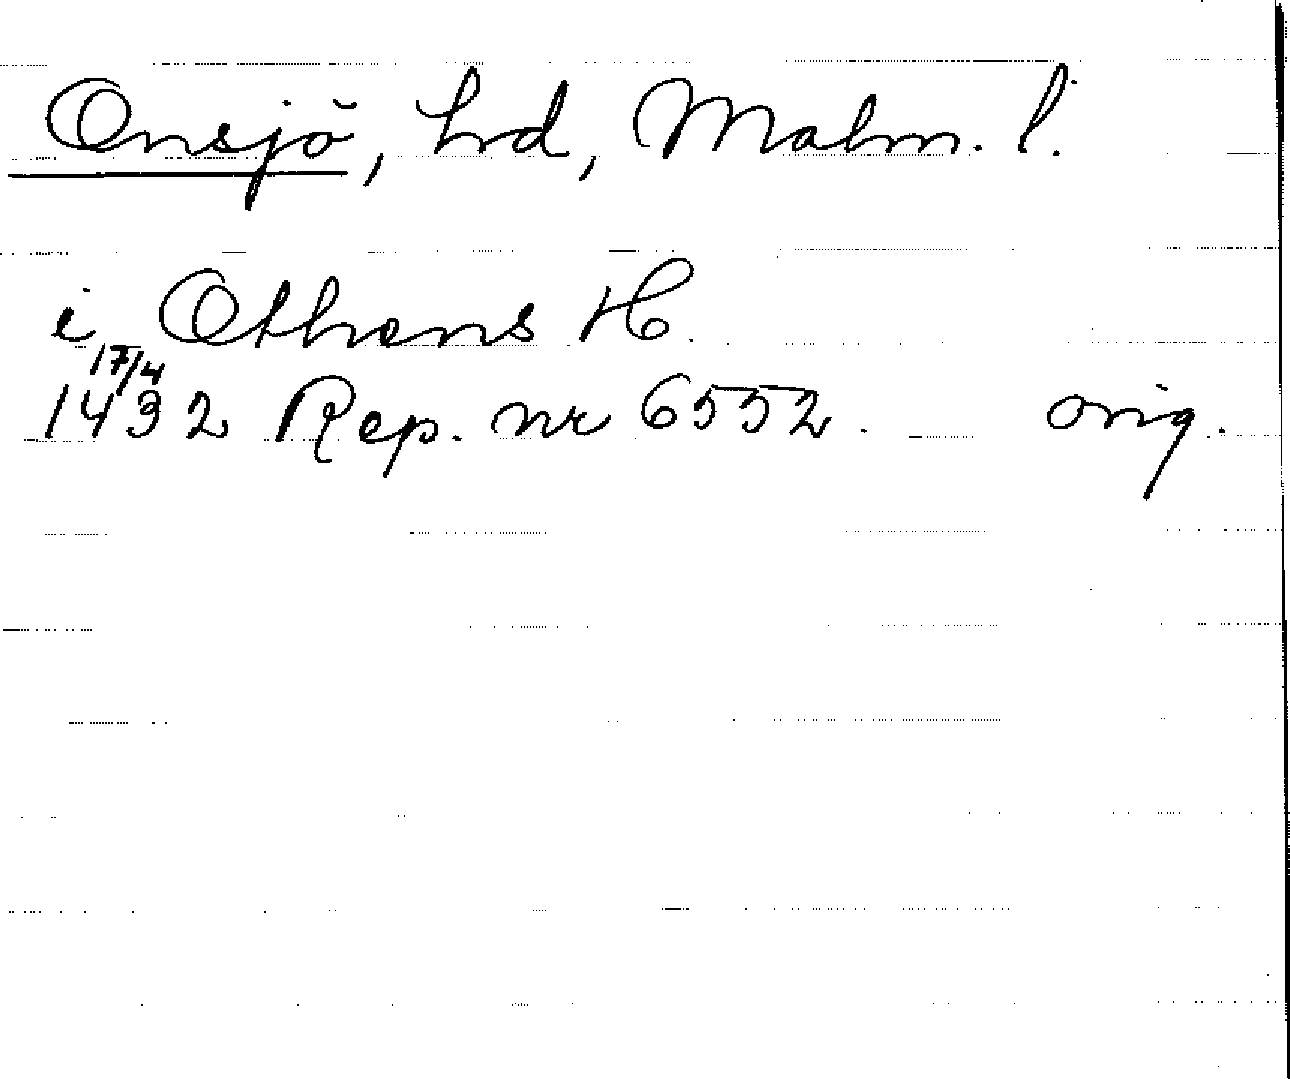 Onsjö, hd, Malm. l.
i Othens H.
17/4
1432 Rep. nr 6552. orig.